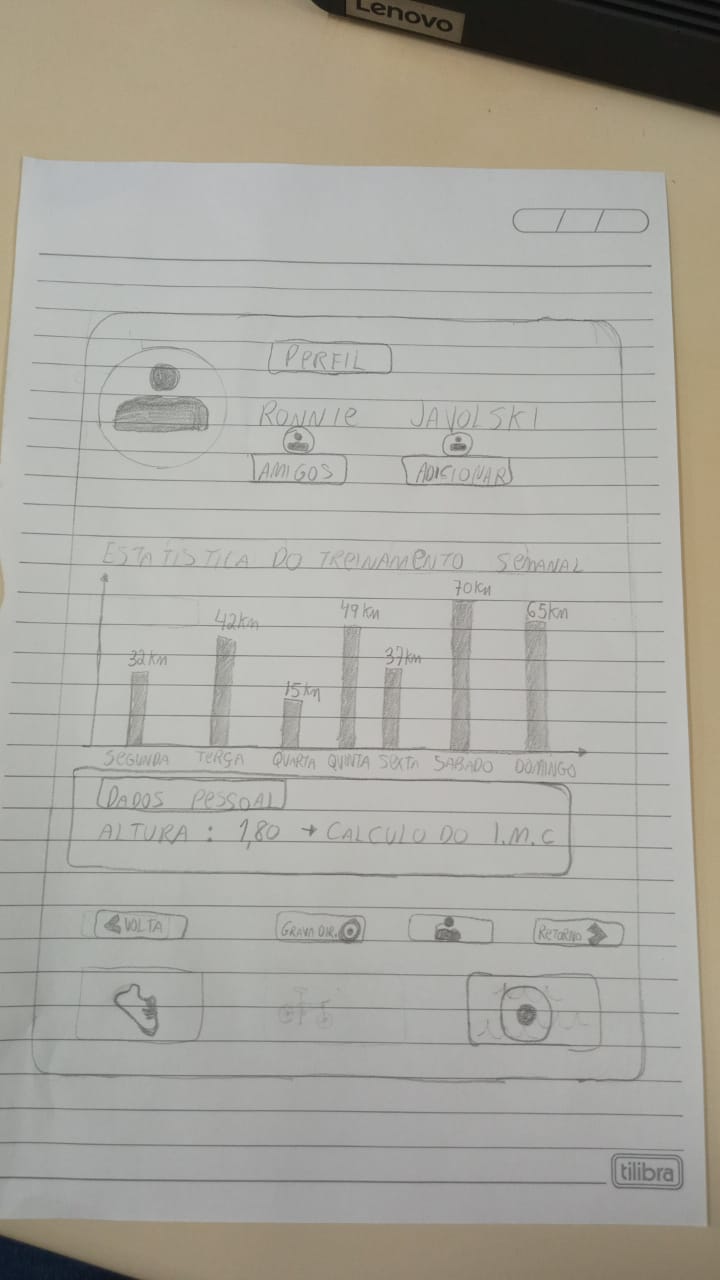 Lenovo
/ /
PERFIL
RONNIE JAVOLSKI
AMIGOS ADICIONAR
ESTATISTICA DO TREINAMENTO SEMANAL
32km 42km 15km 49km 37km 70km 65km
SEGUNDA TERÇA QUARTA QUINTA SEXTA SABADO DOMINGO
DADOS PESSOAL
ALTURA : 1,80 → CALCULO DO I.M.C
VOLTA GRAVADOR. RETORNO
tilibra